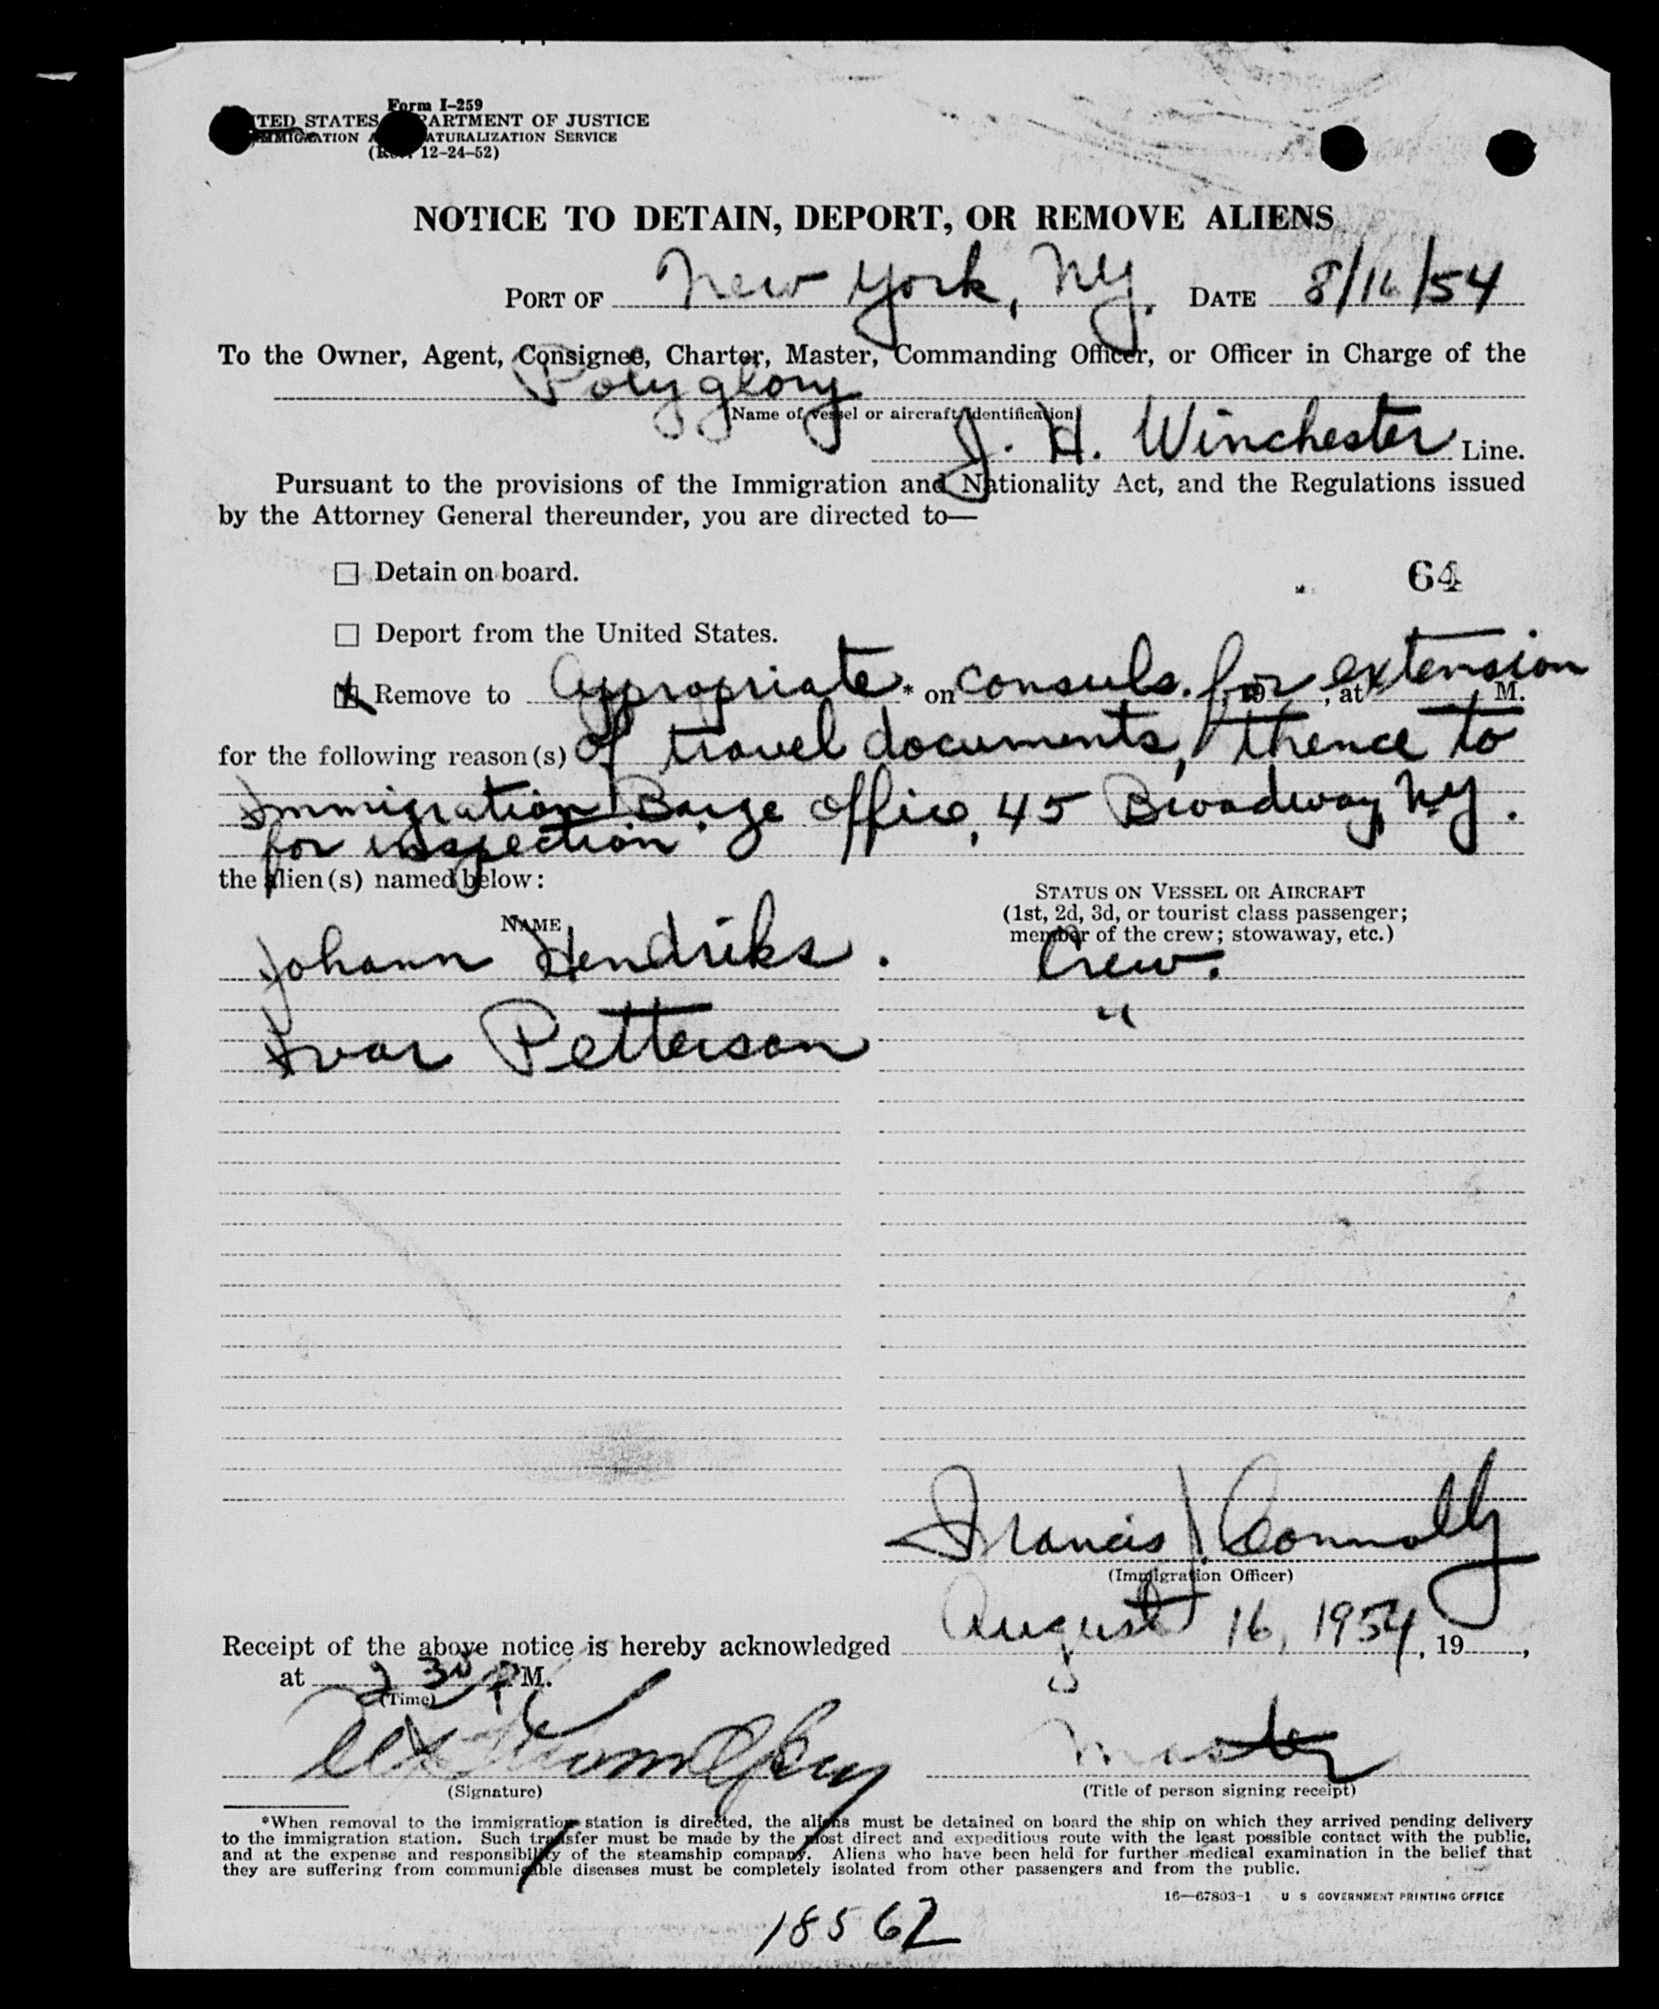 Form I-259
UNITED STATES DEPARTMENT OF JUSTICE
IMMIGRATION AND NATURALIZATION SERVICE
(Rev. 12-24-52)
NOTICE TO DETAIN, DEPORT, OR REMOVE ALIENS
PORT OF New York, NY. DATE 8/16/54
To the Owner, Agent, Consignee, Charter, Master, Commanding Officer, or Officer in Charge of the
Polyglory
(Name of vessel or aircraft identification)
J. H. Winchester Line.
Pursuant to the provisions of the Immigration and Nationality Act, and the Regulations issued
by the Attorney General thereunder, you are directed to—
Detain on board.
64
Deport from the United States.
Remove to Appropriate * on consuls. for extension , 19 , at M.
for the following reason(s) of travel documents, thence to
Immigration Barge Office, 45 Broadway, NY.
for inspection
the alien(s) named below:
STATUS ON VESSEL OR AIRCRAFT
(1st, 2d, 3d, or tourist class passenger;
NAME
member of the crew; stowaway, etc.)
Johann Hendriks. Crew.
Ivar Petterson "
Francis J. Connolly
(Immigration Officer)
Receipt of the above notice is hereby acknowledged August 16, 1954, 19 ,
at 2 30 P M.
(Time)
Master
(Signature) (Title of person signing receipt)
*When removal to the immigration station is directed, the aliens must be detained on board the ship on which they arrived pending delivery
to the immigration station. Such transfer must be made by the most direct and expeditious route with the least possible contact with the public,
and at the expense and responsibility of the steamship company. Aliens who have been held for further medical examination in the belief that
they are suffering from communicable diseases must be completely isolated from other passengers and from the public.
16—67803-1 U S GOVERNMENT PRINTING OFFICE
18562